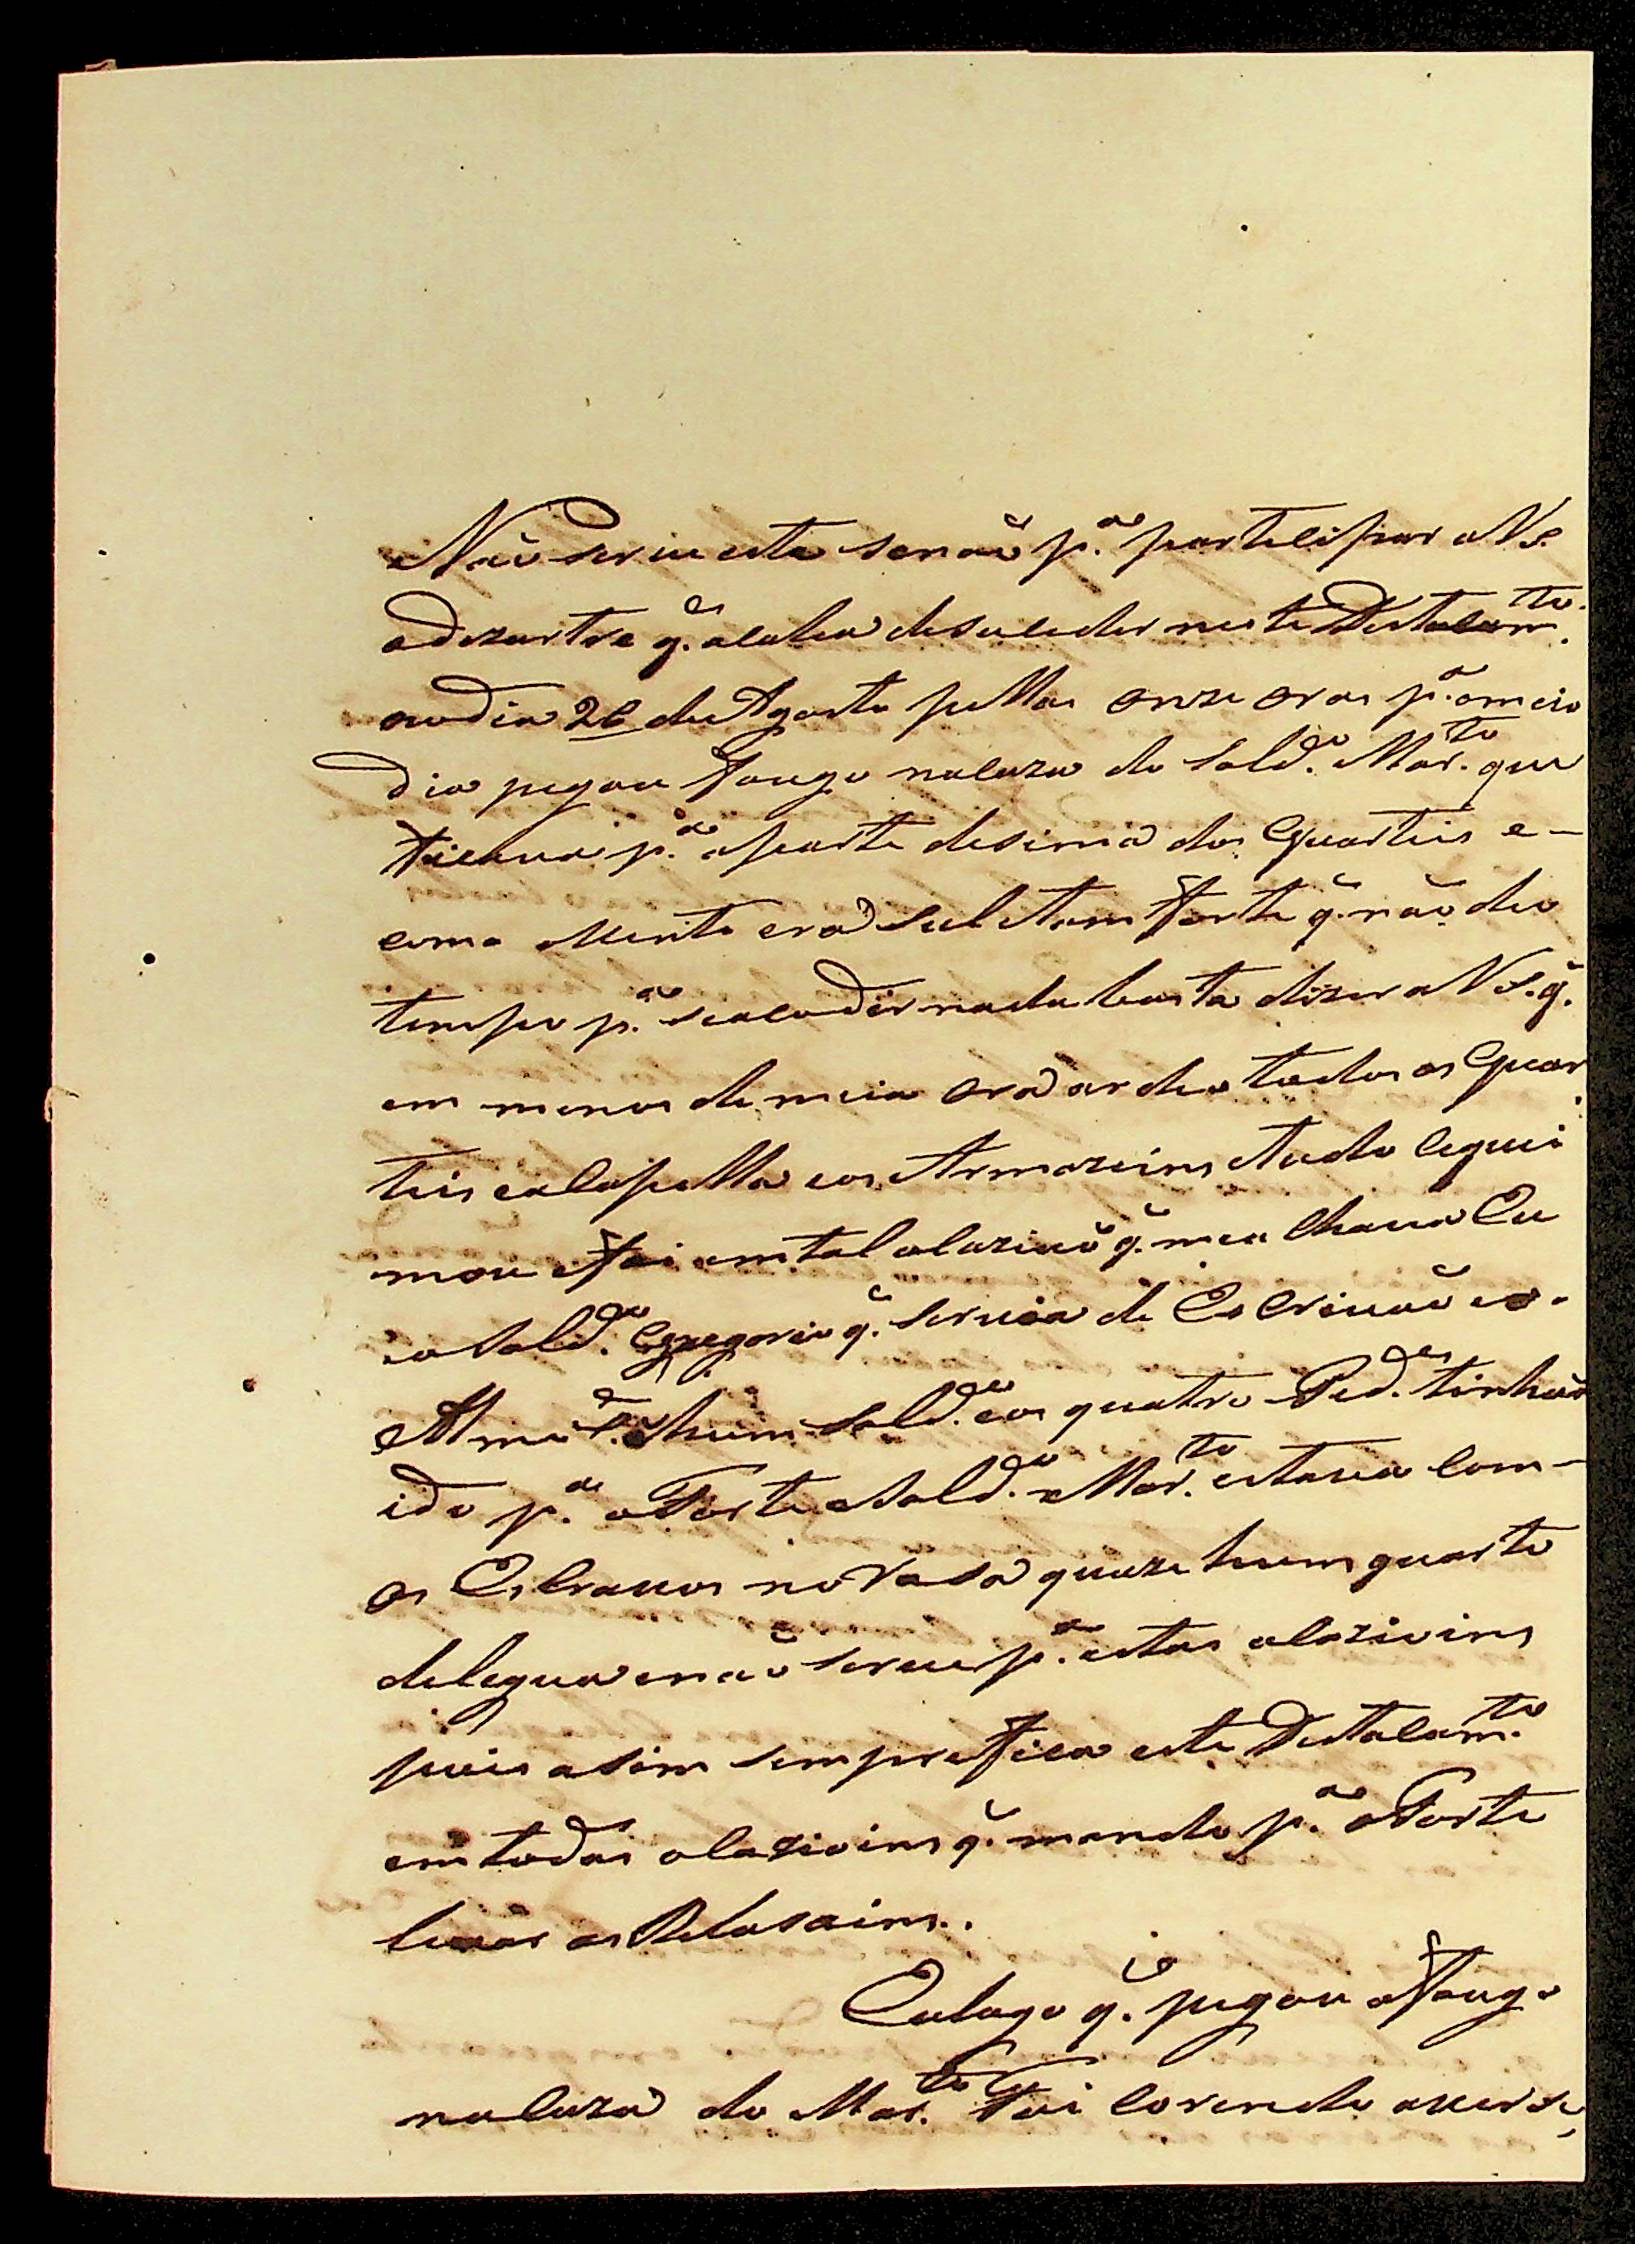 Não serve esta senaõ p.ª partelipar a VS.
adezartre q̃ acaba desuceder neste Destacam.to
no dia 26 de Agosto pellas onze oras p.ª o meio
dia pegou fougo nacaza do Sold.º Mor.to que
ficava p.ª aparte desima dos Quarteis e -
como Vento era Sul Tam forte q̃ não deo
tempo p.ª seacodir nada basta dizer a VS. q̃
em menos de meia ora ardeo todos os Quar
teis eacapella eos Armazeins etudo Cequei
mou efoi emtal ocaziaõ q̃ mea chava Eu
eo Sold.º Gregorio q̃ servia de Escrivaõ eo
Almox.e hum Sold.º eos quatro Ped.es tinhaõ
ido p.ª o Forte eoSold.º Mor.to estava com -
os Escravos no Vasa quaze hum quarto
delegua enaõ serve p.ª estas ocazioins
pois asim sempre fica este Destacam.to
em todas ocazioins q̃ mando p.ª o Forte
levar as Relasoins.
Eulogo q̃ pegou ofougo
nacaza do Mor.to Fui corendo aver se